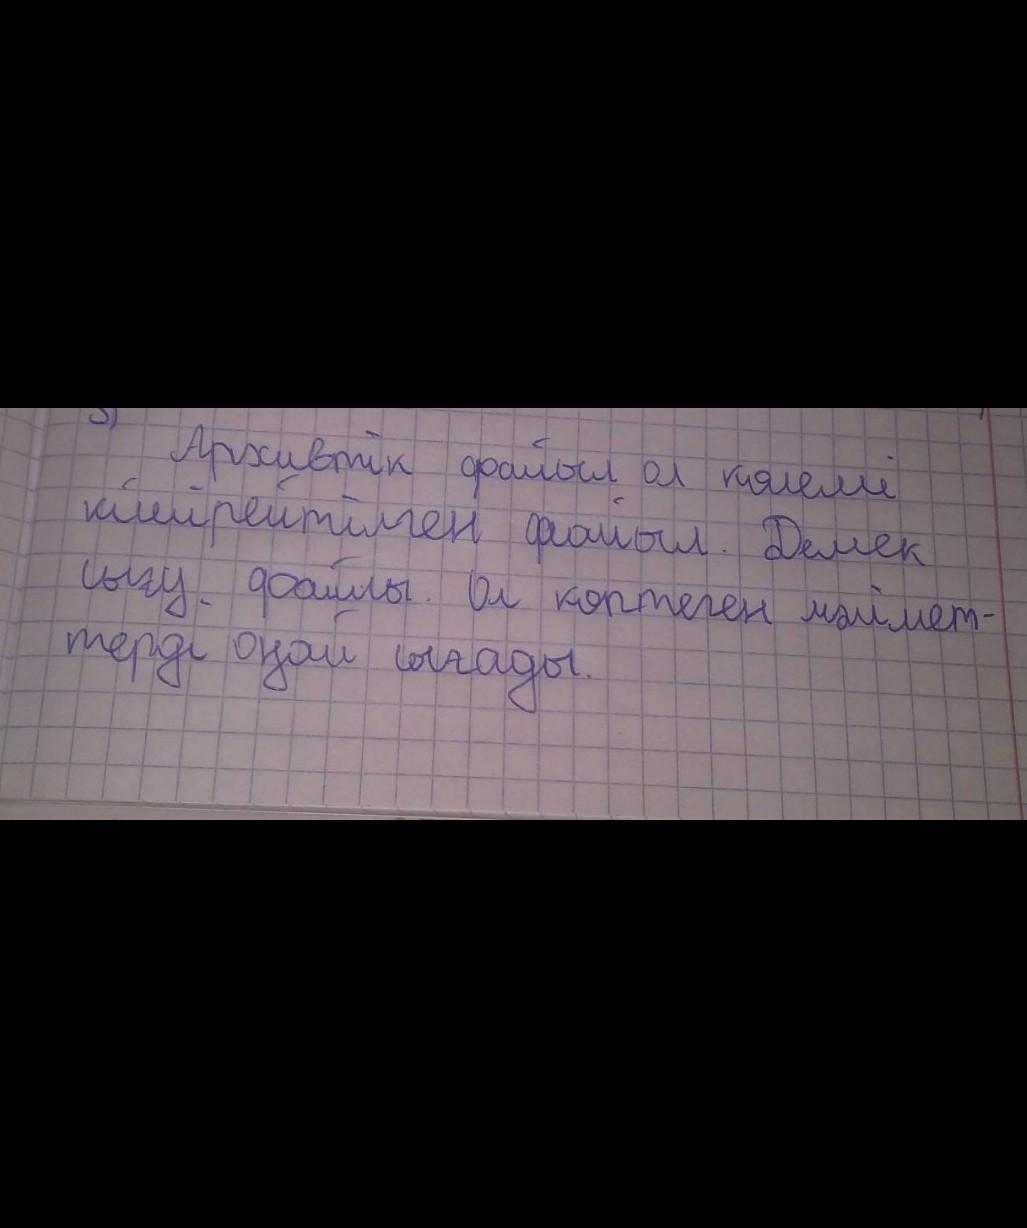 3)
Архивтік файыл ол көлемі
кішірейтілген файыл. Демек
сығу файлы. Ол көптеген мәлімет-
терді оңай сығады.